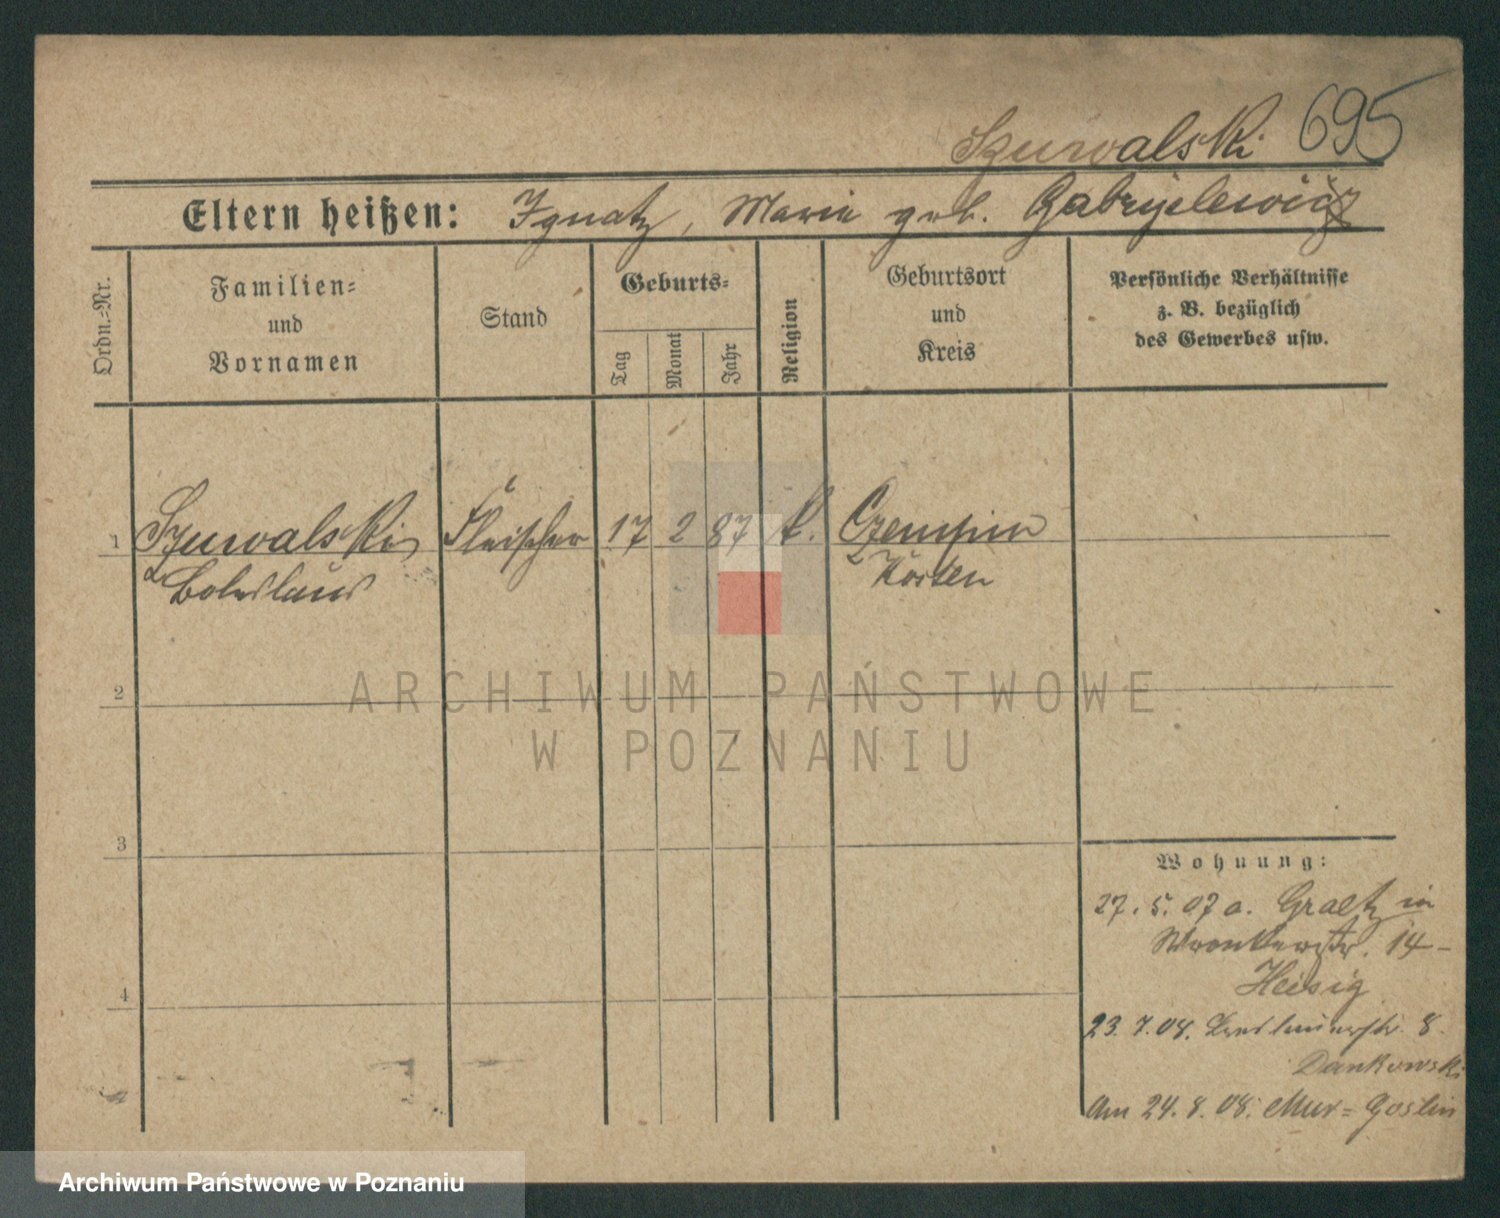 Szuwalski 695
Eltern heißen: Ignatz, Marie geb. Gabryelewicz
Ordn.-Nr.
Familien-
und
Vornamen
Stand
Geburts-
Tag
Monat
Jahr
Religion
Geburtsort
und
Kreis
Persönliche Verhältnisse
z. B. bezüglich
des Gewerbes usw.
1 Szuwalski Fleischer 17 2 87 k. Czempin
Boleslaus Kosten
2
ARCHIWUM PAŃSTWOWE
W POZNANIU
3
4
Wohnung:
27. 5. 07 a. Graetz in
Wronkerstr. 14 -
Heisig
23. 7. 08. 8.
Dankowski
Am 24. 8. 08. Mur= Goslin
Archiwum Państwowe w Poznaniu